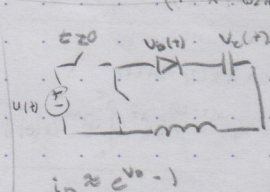 t≥0 V_D(t) V_C(t)
u(t)
i_D ≈ e^{V_D} - 1